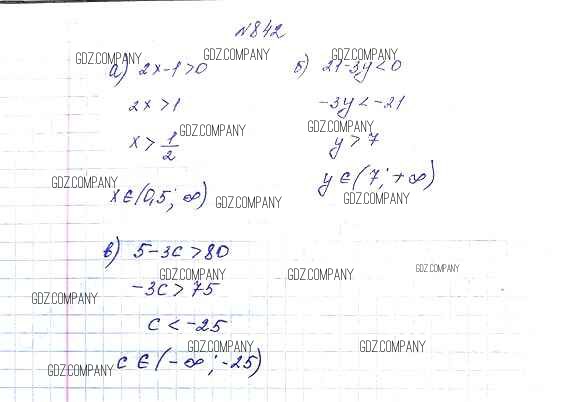 №842
GDZ.COMPANY GDZ.COMPANY GDZ.COMPANY
а) 2x-1>0 б) 21-3y<0
2x>1 -3y<-21
GDZ.COMPANY GDZ.COMPANY
x>1/2 y>7
GDZ.COMPANY
x∈(0,5; ∞) y∈(7; +∞)
GDZ.COMPANY GDZ.COMPANY
в) 5-3c>80
GDZ.COMPANY GDZ.COMPANY GDZ.COMPANY
-3c>75
GDZ.COMPANY
c<-25
GDZ.COMPANY GDZ.COMPANY
c∈(-∞; -25)
GDZ.COMPANY